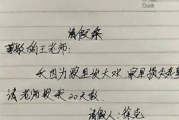 请假条
尊敬的王老师：
我因为家里失火，家里损失严重
请老师批我20天假
请假人：徐克